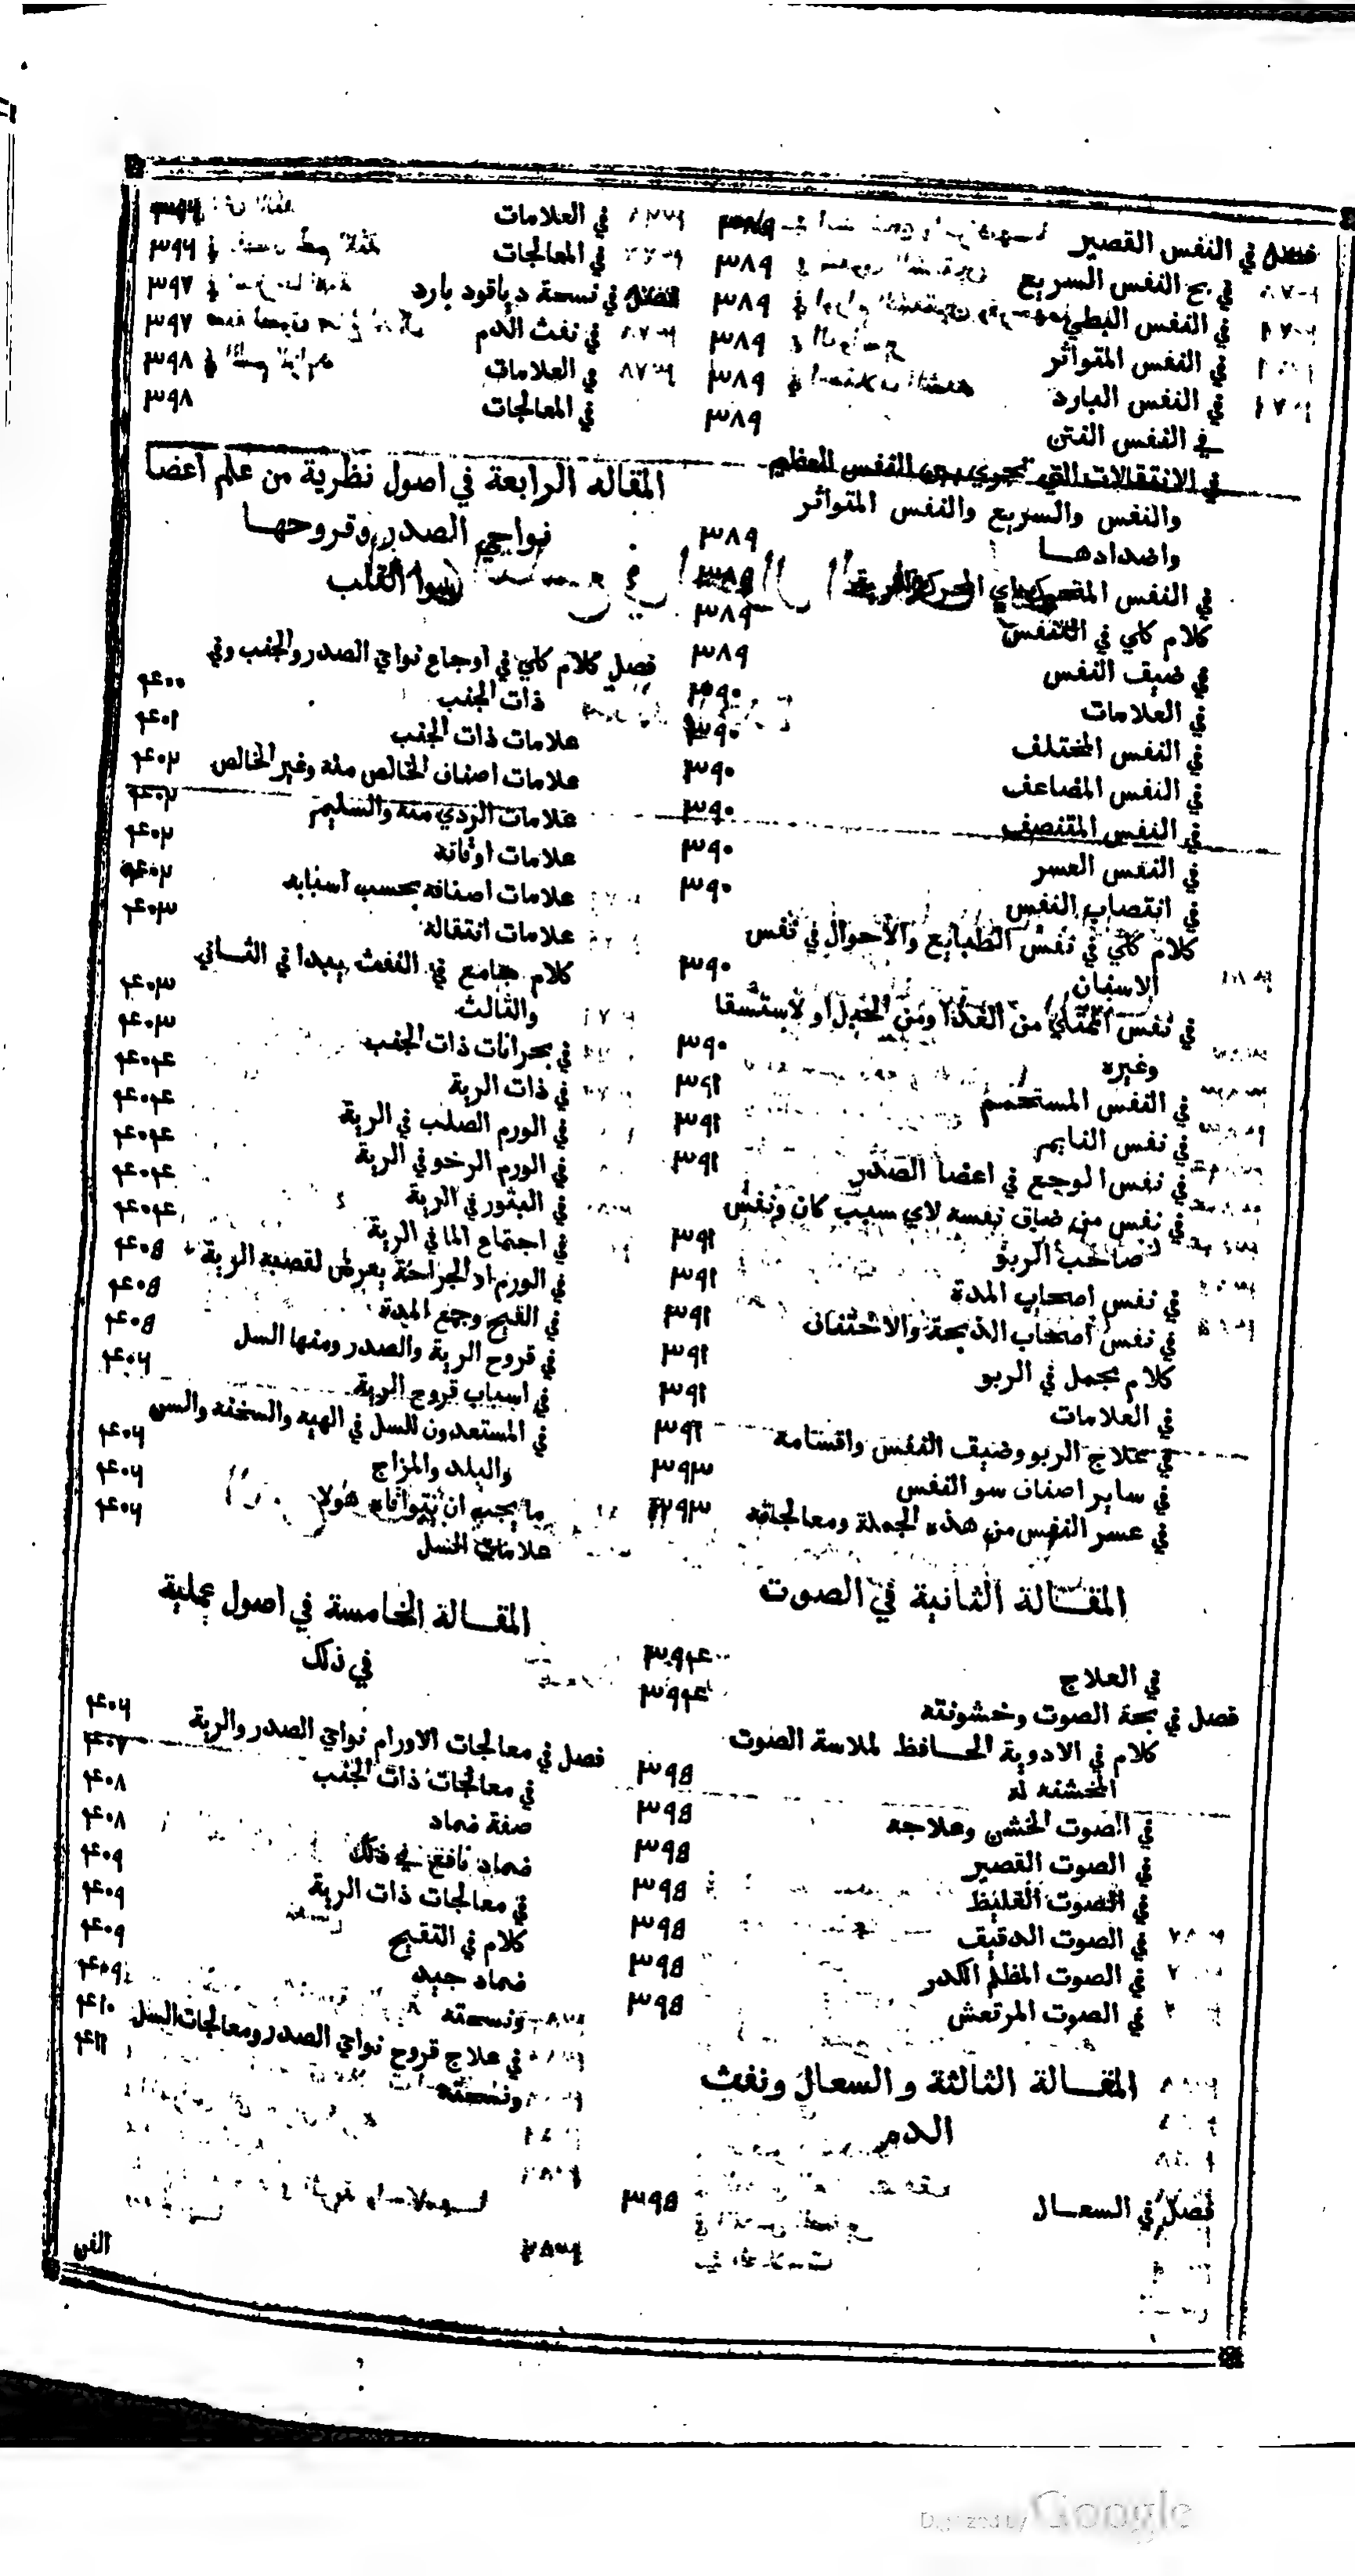 فصل في النفس القصير ٣٨٩
في النفس السريع ٣٨٩
في النفس البطي ٣٨٩
في النفس المتواثر ٣٨٩
في النفس البارد ٣٨٩
في النفس النتن ٣٨٩
في الانتقالات التي تجري بين النفس العظيم
والنفس والسريع والنفس المتواثر
واضدادها ٣٨٩
في النفس ٣٨٩
كلام كلي في النفس ٣٨٩
في ضيق النفس ٣٨٩
في العلامات ٣٩٠
في النفس المختلف ٣٩٠
في النفس المضاعف ٣٩٠
في النفس المنتصف ٣٩٠
في النفس العسر ٣٩٠
في انتصاب النفس ٣٩٠
كلام كلي في نفس الطبايع والاحوال في نفس
الاسنان ٣٩٠
في نفس الممتلي من الغذا ومن الحبل او لاستسقا
وغيره ٣٩٠
في النفس المستحم ٣٩١
في نفس النايم ٣٩١
في نفس الوجع في اعضا الصدر ٣٩١
في نفس من ضاق نفسه لاي سبب كان ونفس
صاحب الربو ٣٩١
في نفس اصحاب المدة ٣٩١
في نفس اصحاب الذبحة والاختناق ٣٩١
كلام مجمل في الربو ٣٩١
في العلامات ٣٩١
في علاج الربو وضيق النفس واقسامه ٣٩١
في ساير اصناف سو النفس ٣٩٣
في عسر النفس من هذه الجملة ومعالجاته ٣٩٣
المقـالة الثانية في الصوت
في العلاج ٣٩٤
فصل في بحة الصوت وخشونته ٣٩٤
كلام في الادوية الحـافظ لملاسة الصوت
المخشنه له ٣٩٥
في الصوت الخشن وعلاجه ٣٩٥
في الصوت القصير ٣٩٥
في الصوت الغليظ ٣٩٥
في الصوت الدقيق ٣٩٥
في الصوت المظلم الكدر ٣٩٥
في الصوت المرتعش ٣٩٥
المقـالة الثالثة والسعال ونفث
الدم
فصل في السعـال ٣٩٥
في العلامات ٣٩٦
في المعالجات ٣٩٦
فصل في نسخة دياقود بارد ٣٩٧
في نفث الدم ٣٩٧
في العلامات ٣٩٨
في المعالجات ٣٩٨
المقاله الرابعة في اصول نظرية من علم اعضا
نواحي الصدر وقروحها
سوا القلب
فصل كلام كلي في اوجاع نواحي الصدر والجنب وفي
ذات الجنب ٤٠٠
علامات ذات الجنب ٤٠١
علامات اصناف الخالص منه وغير الخالص ٤٠٢
علامات الردي منه والسليم ٤٠٢
علامات اوقاته ٤٠٢
علامات اصنافه بحسب اسبابه ٤٠٢
علامات انتقاله ٤٠٣
كلام جامع في النفث يبدا في الثـاني
والثالث ٤٠٣
في بحرانات ذات الجنب ٤٠٣
في ذات الرية ٤٠٤
في الورم الصلب في الرية ٤٠٤
في الورم الرخو في الرية ٤٠٤
في البثور في الرية ٤٠٤
في اجتماع الما في الرية ٤٠٤
في الورم اد الجراحة يعرض لقصبه الرية ٤٠٥
في القيح وجمع المدة ٤٠٥
في قروح الرية والصدر ومنها السل ٤٠٥
في اسباب قروح الرية ٤٠٦
في المستعدون للسل في الهيه والسخنه والسن
والبلد والمزاج ٤٠٦
ما يجب ان يتوقاه هولا ٤٠٦
علامات السل ٤٠٦
المقـالة الخامسة في اصول عملية
في ذلك
فصل في معالجات الاورام نواحي الصدر والرية ٤٠٦
في معالجات ذات الجنب ٤٠٧
صفة ضماد ٤٠٨
ضماد نافع في ذلك ٤٠٨
في معالجات ذات الرية ٤٠٩
كلام في التقيح ٤٠٩
ضماد جيد ٤٠٩
ونسخته ٤٠٩
في علاج قروح نواحي الصدر ومعالجات السل ٤١٠
ونسخته ٤١١
الفن
Digitized by Google